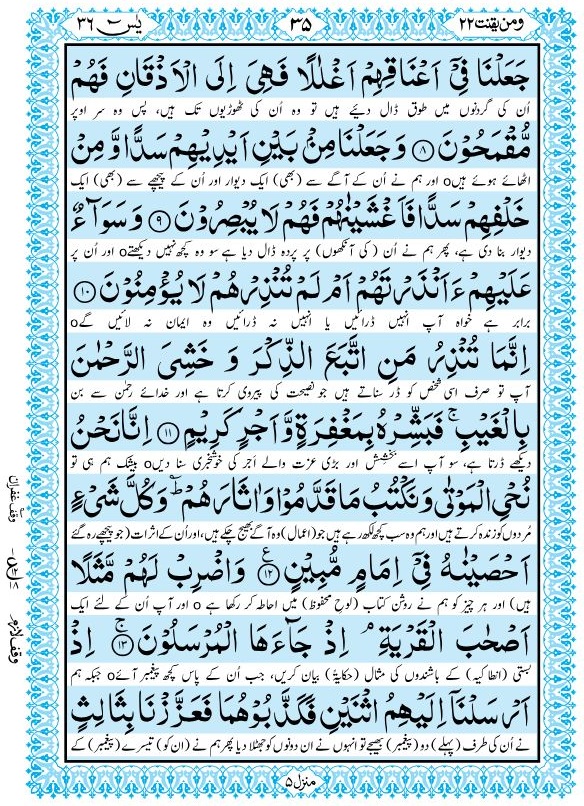 ومن یقنت ۲۲ ۳۵ یٰسٓ ۳۶
جَعَلْنَا فِیْۤ اَعْنَاقِهِمْ اَغْلٰلًا فَهِیَ اِلَى الْاَذْقَانِ فَهُمْ
اُن کی گردنوں میں طوق ڈال دیئے ہیں تو وہ اُن کی ٹھوڑیوں تک ہیں، پس وہ سر اوپر
مُّقْمَحُوْنَ ۸ وَ جَعَلْنَا مِنْۢ بَیْنِ اَیْدِیْهِمْ سَدًّا وَّ مِنْ
اٹھائے ہوئے ہیںo اور ہم نے اُن کے آگے سے (بھی) ایک دیوار اور اُن کے پیچھے سے (بھی) ایک
خَلْفِهِمْ سَدًّا فَاَغْشَیْنٰهُمْ فَهُمْ لَا یُبْصِرُوْنَ ۹ وَ سَوَآءٌ
دیوار بنا دی ہے، پھر ہم نے اُن (کی آنکھوں) پر پردہ ڈال دیا ہے سو وہ کچھ نہیں دیکھتےo اور اُن پر
عَلَیْهِمْ ءَاَنْذَرْتَهُمْ اَمْ لَمْ تُنْذِرْهُمْ لَا یُؤْمِنُوْنَ ۱۰
برابر ہے خواہ آپ انہیں ڈرائیں یا انہیں نہ ڈرائیں وہ ایمان نہ لائیں گےo
اِنَّمَا تُنْذِرُ مَنِ اتَّبَعَ الذِّكْرَ وَ خَشِیَ الرَّحْمٰنَ
آپ تو صرف اسی شخص کو ڈر سناتے ہیں جو نصیحت کی پیروی کرتا ہے اور خدائے رحمٰن سے بن
بِالْغَیْبِ ۚ فَبَشِّرْهُ بِمَغْفِرَةٍ وَّ اَجْرٍ كَرِیْمٍ ۱۱ اِنَّا نَحْنُ
دیکھے ڈرتا ہے، سو آپ اسے بخشش اور بڑی عزت والے اَجر کی خوشخبری سنا دیںo بیشک ہم ہی تو
نُحْیِ الْمَوْتٰى وَ نَكْتُبُ مَا قَدَّمُوْا وَ اٰثَارَهُمْ ؕ وَ كُلَّ شَیْءٍ
مُردوں کو زندہ کرتے ہیں اور ہم وہ سب کچھ لکھ رہے ہیں جو (اعمال) وہ آگے بھیج چکے ہیں، اور اُن کے اثرات (جو پیچھے رہ گئے
اَحْصَیْنٰهُ فِیْۤ اِمَامٍ مُّبِیْنٍ ۱۲ وَ اضْرِبْ لَهُمْ مَّثَلًا
ہیں) اور ہر چیز کو ہم نے روشن کتاب (لوحِ محفوظ) میں احاطہ کر رکھا ہے o اور آپ اُن کے لئے ایک
اَصْحٰبَ الْقَرْیَةِ ۘ اِذْ جَآءَهَا الْمُرْسَلُوْنَ ۱۳ اِذْ
بستی (انطاکیہ) کے باشندوں کی مثال (حکایۃً) بیان کریں، جب اُن کے پاس کچھ پیغمبر آئےo جبکہ ہم
اَرْسَلْنَاۤ اِلَیْهِمُ اثْنَیْنِ فَكَذَّبُوْهُمَا فَعَزَّزْنَا بِثَالِثٍ
نے اُن کی طرف (پہلے) دو (پیغمبر) بھیجے تو انہوں نے ان دونوں کو جھٹلا دیا پھر ہم نے (ان کو) تیسرے (پیغمبر) کے
وقف غفران
وقف لازم
منزل ۵